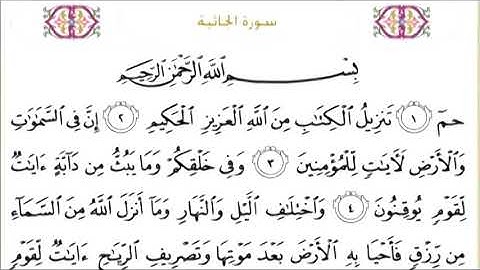 سورة الجاثية
بِسْمِ اللَّهِ الرَّحْمَٰنِ الرَّحِيمِ
حمٓ ١ تَنزِيلُ الْكِتَابِ مِنَ اللَّهِ الْعَزِيزِ الْحَكِيمِ ٢ إِنَّ فِي السَّمَاوَاتِ
وَالْأَرْضِ لَآيَاتٍ لِّلْمُؤْمِنِينَ ٣ وَفِي خَلْقِكُمْ وَمَا يَبُثُّ مِن دَابَّةٍ ءَايَاتٌ
لِّقَوْمٍ يُوقِنُونَ ٤ وَاخْتِلَافِ اللَّيْلِ وَالنَّهَارِ وَمَا أَنزَلَ اللَّهُ مِنَ السَّمَاءِ
مِن رِّزْقٍ فَأَحْيَا بِهِ الْأَرْضَ بَعْدَ مَوْتِهَا وَتَصْرِيفِ الرِّيَاحِ ءَايَاتٌ لِّقَوْمٍ